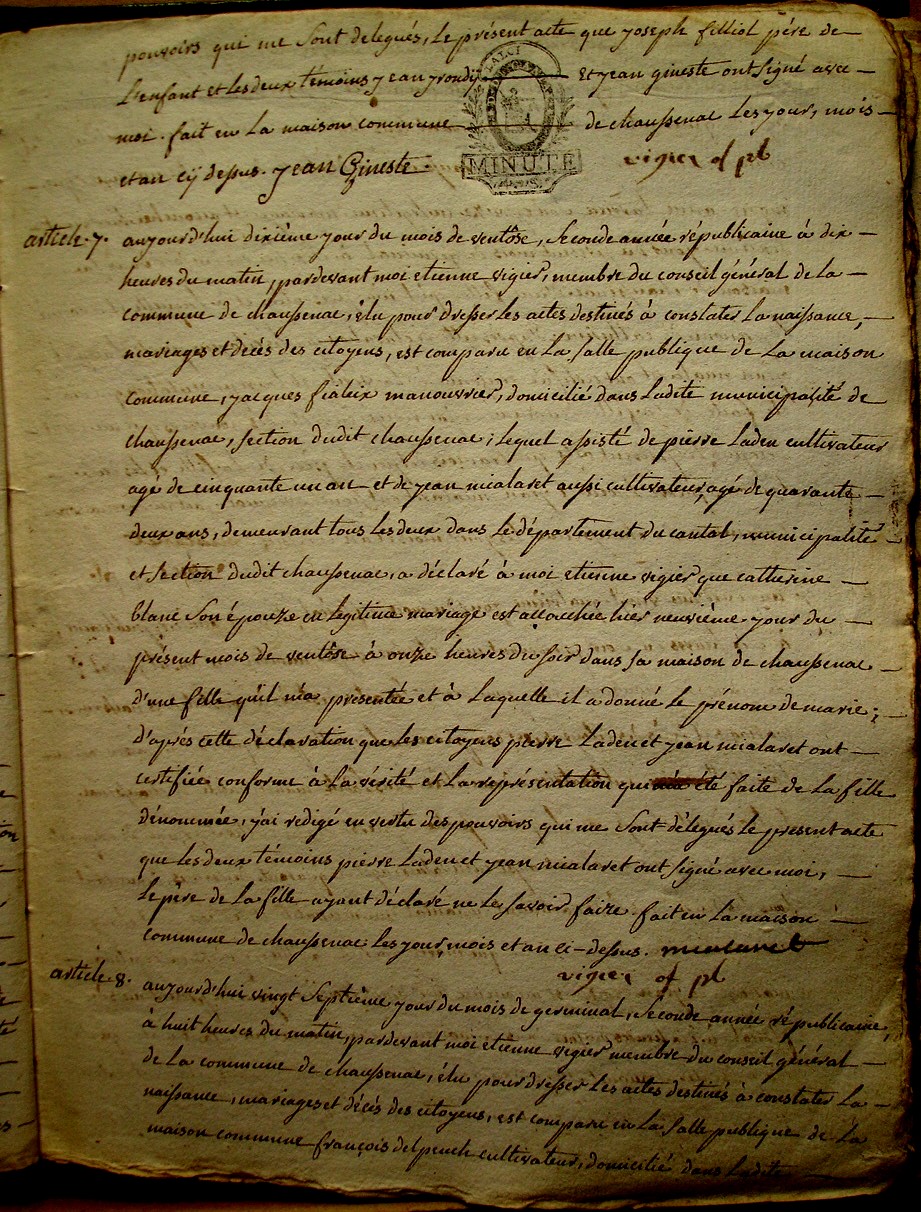 pouvoirs qui me sont delegués, le présent acte que joseph filliol pére de
L'enfant et les deux témoins jean Et jean gineste ont signé avec
moi. fait en la maison commune de chaussenac les jour, mois
et an cy dessus. jean Gineste. vigier of pb
MINUTE
article. 7. aujourd'hui dixième jour du mois de ventôse, seconde année républicaine à dix
heures du matin, pardevant moi etienne vigier, membre du conseil général de la
commune de chaussenac, élu pour dresser les actes destinés à constater la naissance,
mariages et décés des citoyens, est comparu en la salle publique de la maison
commune, jacques fialeix manouvrier, domicilié dans ladite municipalité de
chaussenac, section dudit chaussenac; lequel assisté de pierre laden cultivateur
agé de cinquante un an et de jean mialaret aussi cultivateur, agé de quarante
deux ans, demeurant tous les deux dans le département du cantal, municipalité
et section dudit chaussenac, a déclaré à moi etienne vigier que catherine
blanc son épouze en légitime mariage est accouchée hier neuvième jour du
présent mois de ventôse à onze heures du soir dans sa maison de chaussenac
d'une fille qu'il m'a presentée et à laquelle il a donné le prénom de marie;
d'aprés cette déclaration que les citoyens pierre laden et jean mialaret ont
certifiée conforme à la vérité et la représentation qui été faite de la fille
dénommée, j'ai redigé en vertu des pouvoirs qui me sont délegués le present acte
que les deux témoins pierre laden et jean mialaret ont signé avec moi,
le père de la fille ayant déclaré ne le savoir faire. fait en la maison
commune de chaussenac les jour, mois et an ci-dessus. mialaret
vigier of pb
article. 8. aujourd'hui vingt septième jour du mois de germinal, seconde année républicaine,
à huit heures du matin, pardevant moi etienne vigier membre du conseil général
de la commune de chaussenac, élu pour dresser les actes destinés à constater la
naissance, mariages et décés des citoyens, est comparu en la salle publique de la
maison commune françois delpeuch cultivateur, domicilié dans ladite